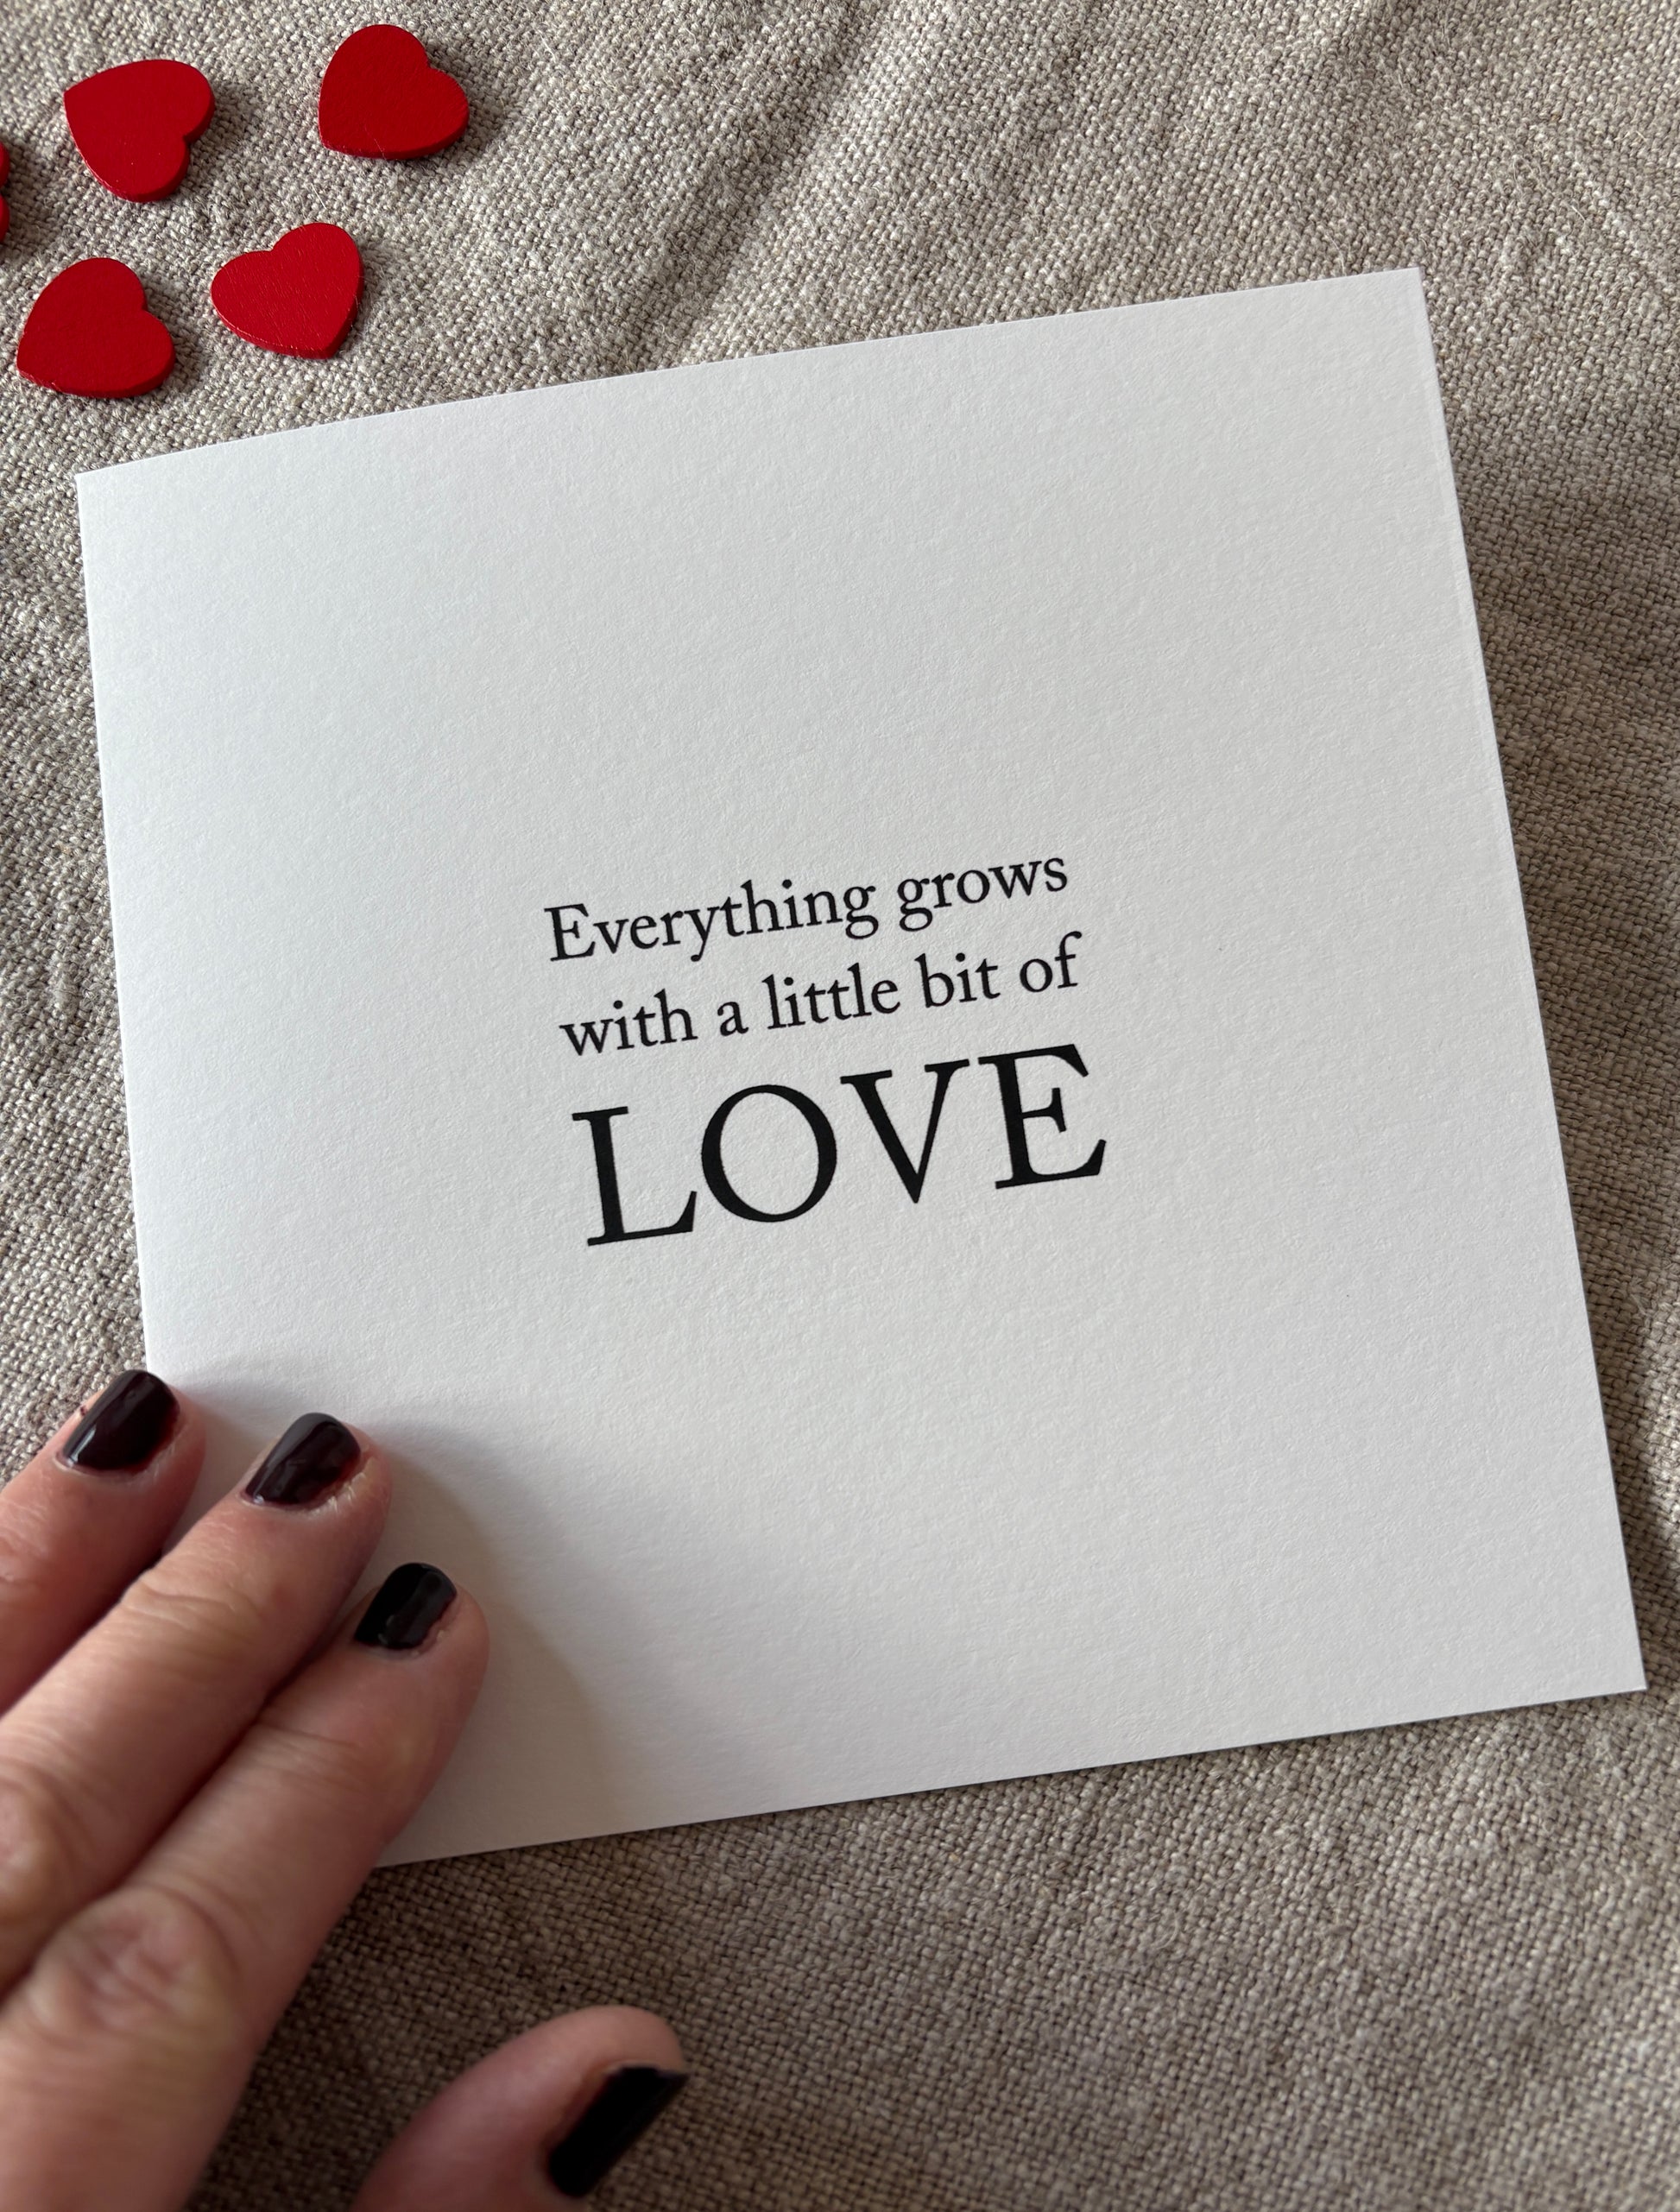 Everything grows
with a little bit of
LOVE